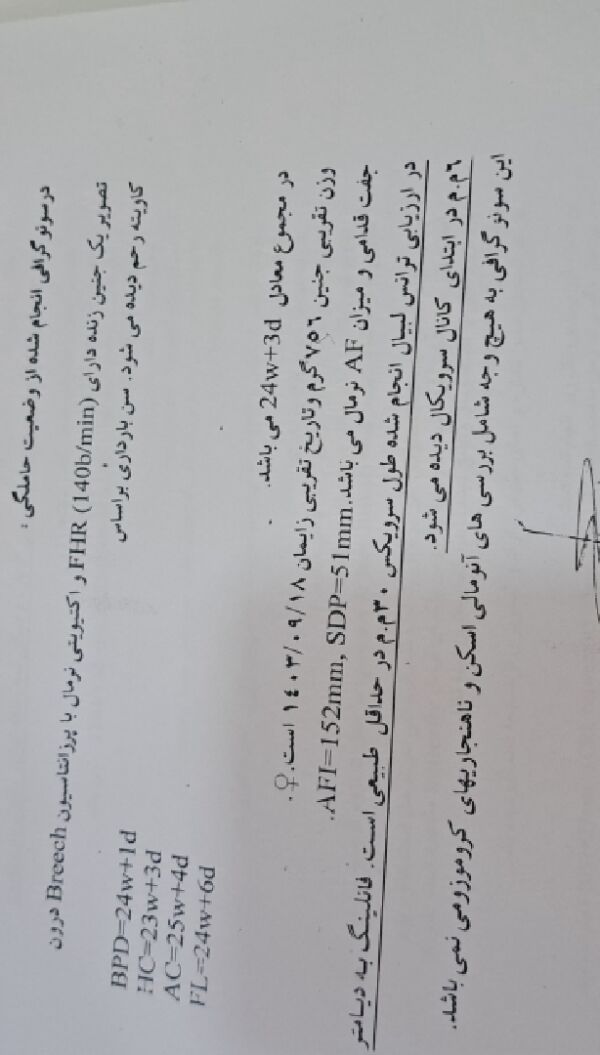 در سونوگرافی انجام شده از وضعیت حاملگی :
تصویر یک جنین زنده دارای FHR (140b/min) و اکتیویتی نرمال با پرزانتاسیون Breech درون
کاویته رحم دیده می شود. سن بارداری براساس
BPD=24w+1d
HC=23w+3d
AC=25w+4d
FL=24w+6d
در مجموع معادل 24w+3d می باشد.
وزن تقریبی جنین ۷۵۶ گرم و تاریخ تقریبی زایمان ۱٤۰۳/۰۹/۱۸ است. ♀.
جفت قدامی و میزان AF نرمال می باشد.AFI=152mm, SDP=51mm.
در ارزیابی ترانس لبیال انجام شده طول سرویکس ۳۰م.م در حداقل طبیعی است. فانلینگ به دیامتر
٦م.م در ابتدای کانال سرویکال دیده می شود.
این سونوگرافی به هیچ وجه شامل بررسی های آنومالی اسکن و ناهنجاریهای کروموزومی نمی باشد.